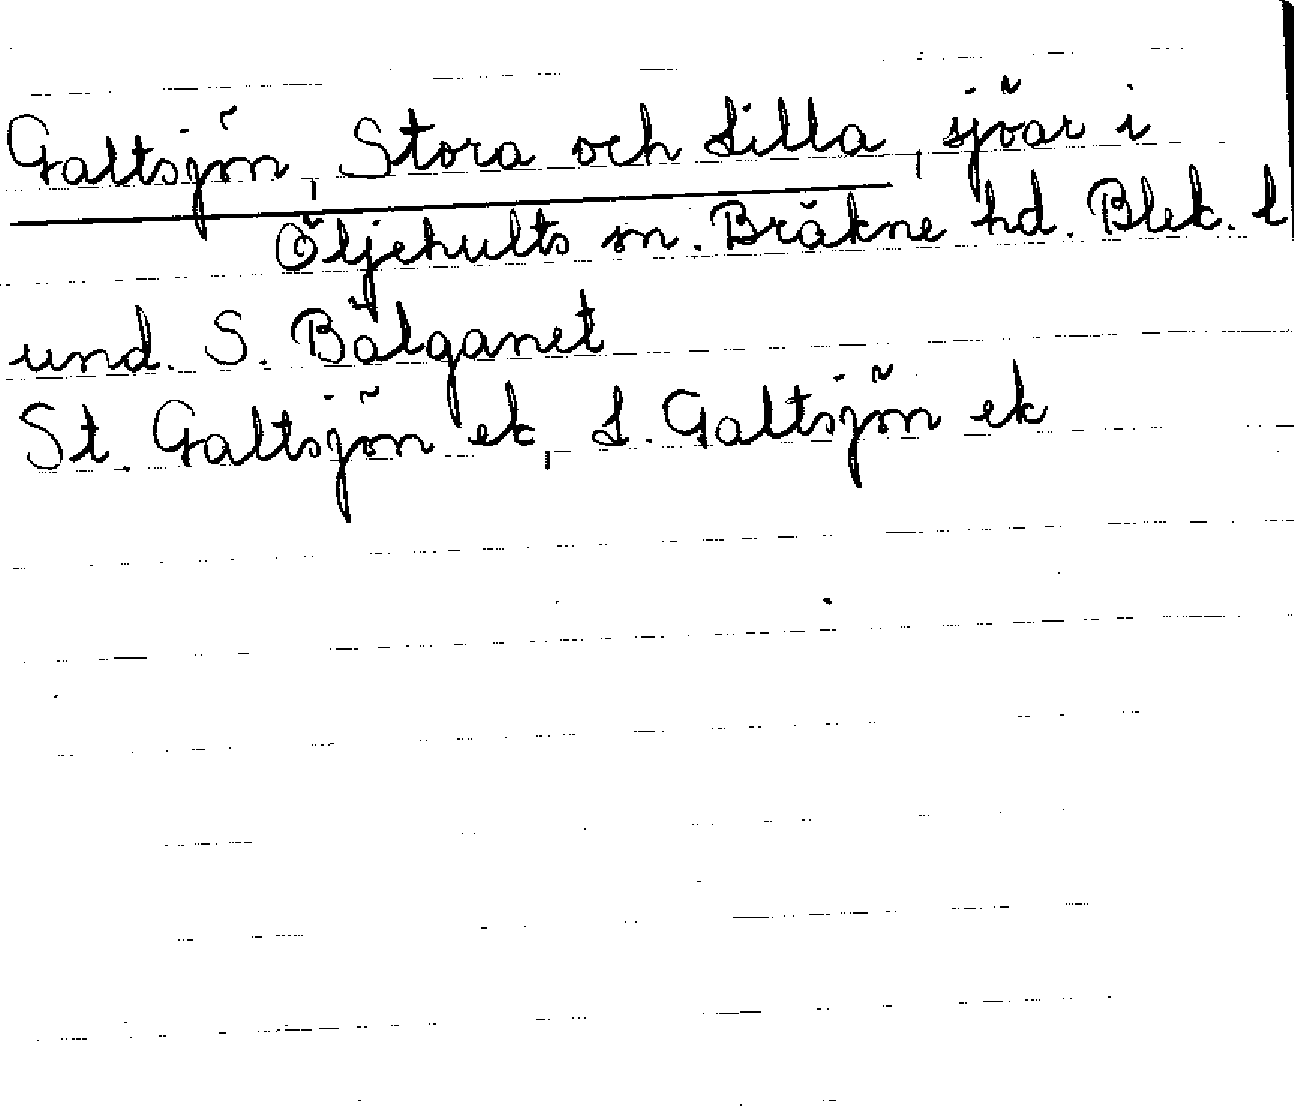 Galtsjön, Stora och Lilla, sjöar i
Öljehults sn. Bräkne hd. Blek. l
und. S. Bälganet
St. Galtsjön ek, L. Galtsjön ek